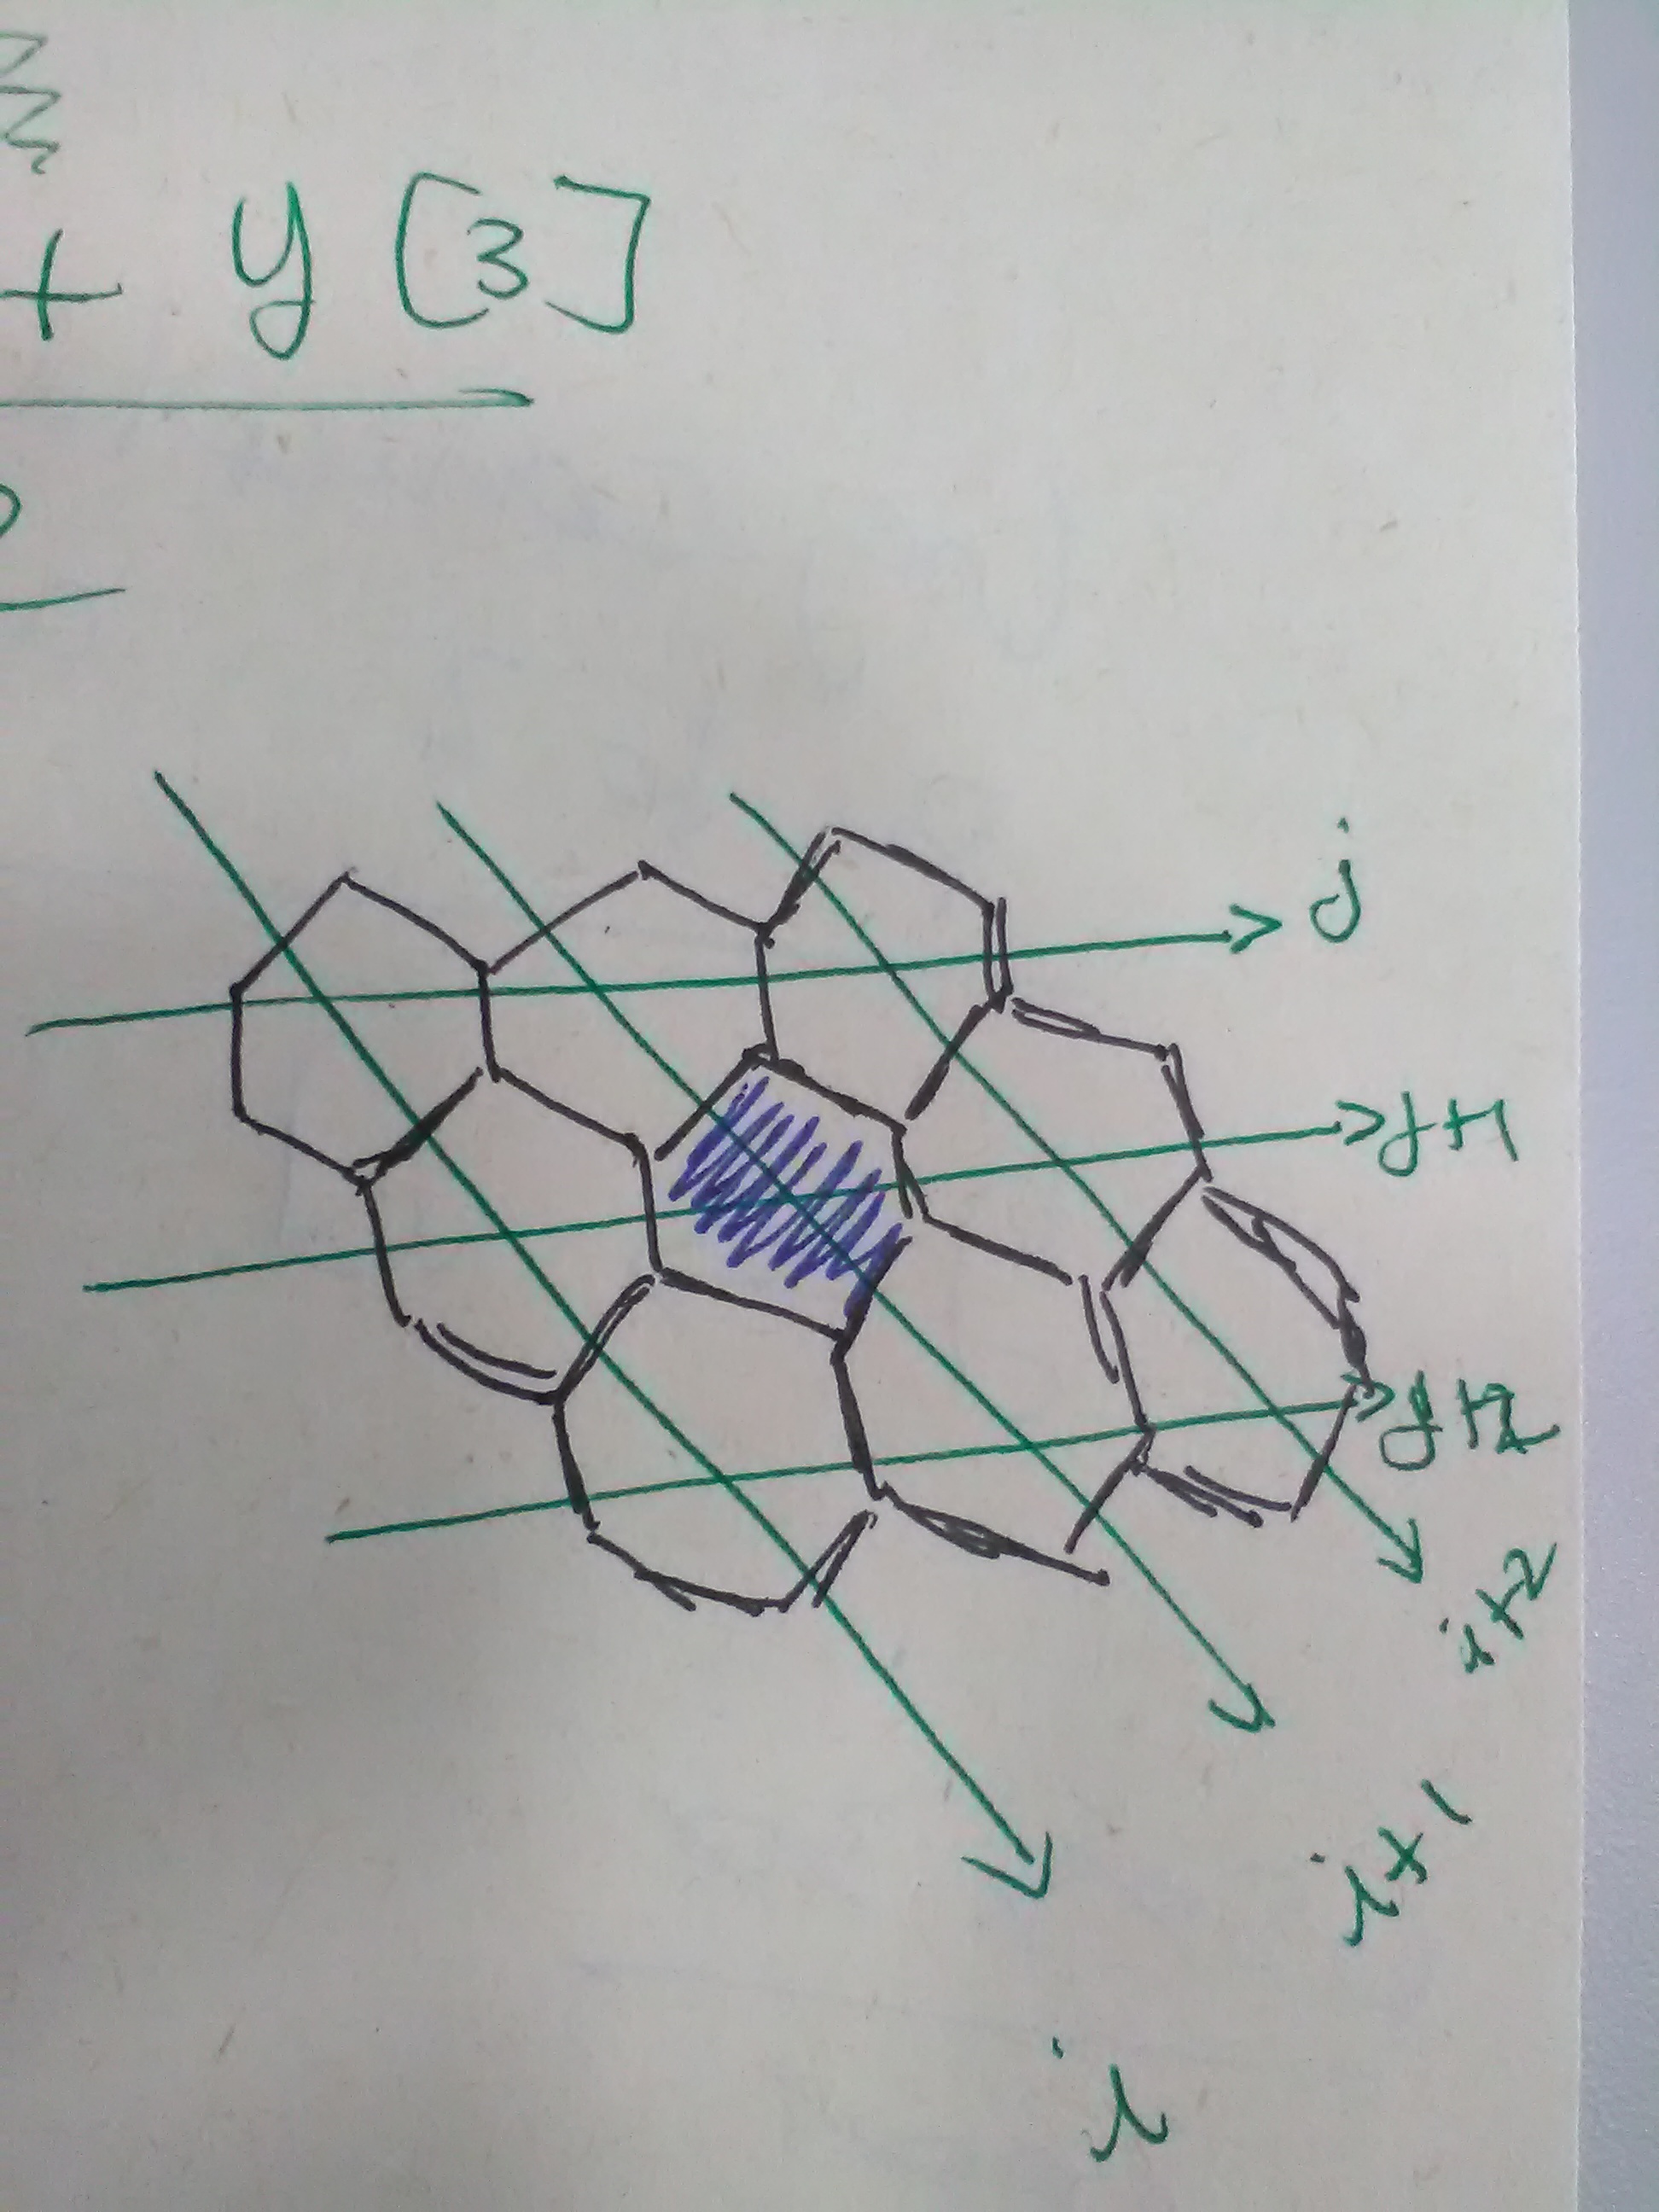 + y [3]
j
j+1
j+2
i+2
i+1
i